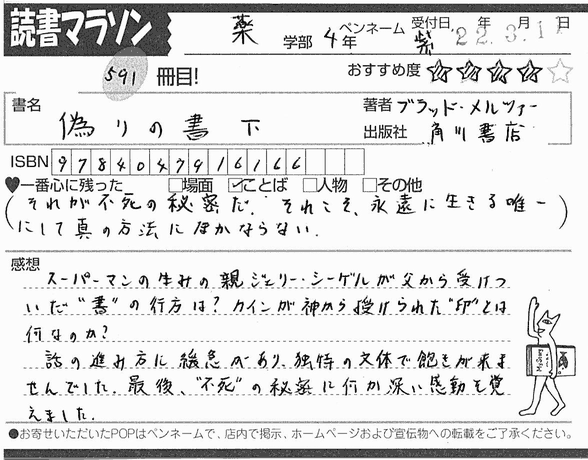 読書マラソン
薬 学部 4年 ペンネーム 紫 受付日 22年 3月 1 日
591 冊目!
おすすめ度 ★★★★☆
書名 偽りの書 下
著者 ブラッド・メルツァー
出版社 角川書店
ISBN 9784047916166
♥一番心に残った □場面 ☑ことば □人物 □その他
(それが不死の秘密だ. それこそ、永遠に生きる唯一
にして真の方法にほかならない.)
感想
スーパーマンの生みの親ジェリー・シーゲルが父から受けつ
いだ“書”の行方は? カインが神から授けられた“印”とは
何なのか?
話の進み方に緩急があり、独特の文体で飽きが来ま
せんでした. 最後、“不死”の秘密に何か深い感動を覚
えました.
●お寄せいただいたPOPはペンネームで、店内で掲示、ホームページおよび宣伝物への転載をご了承ください。